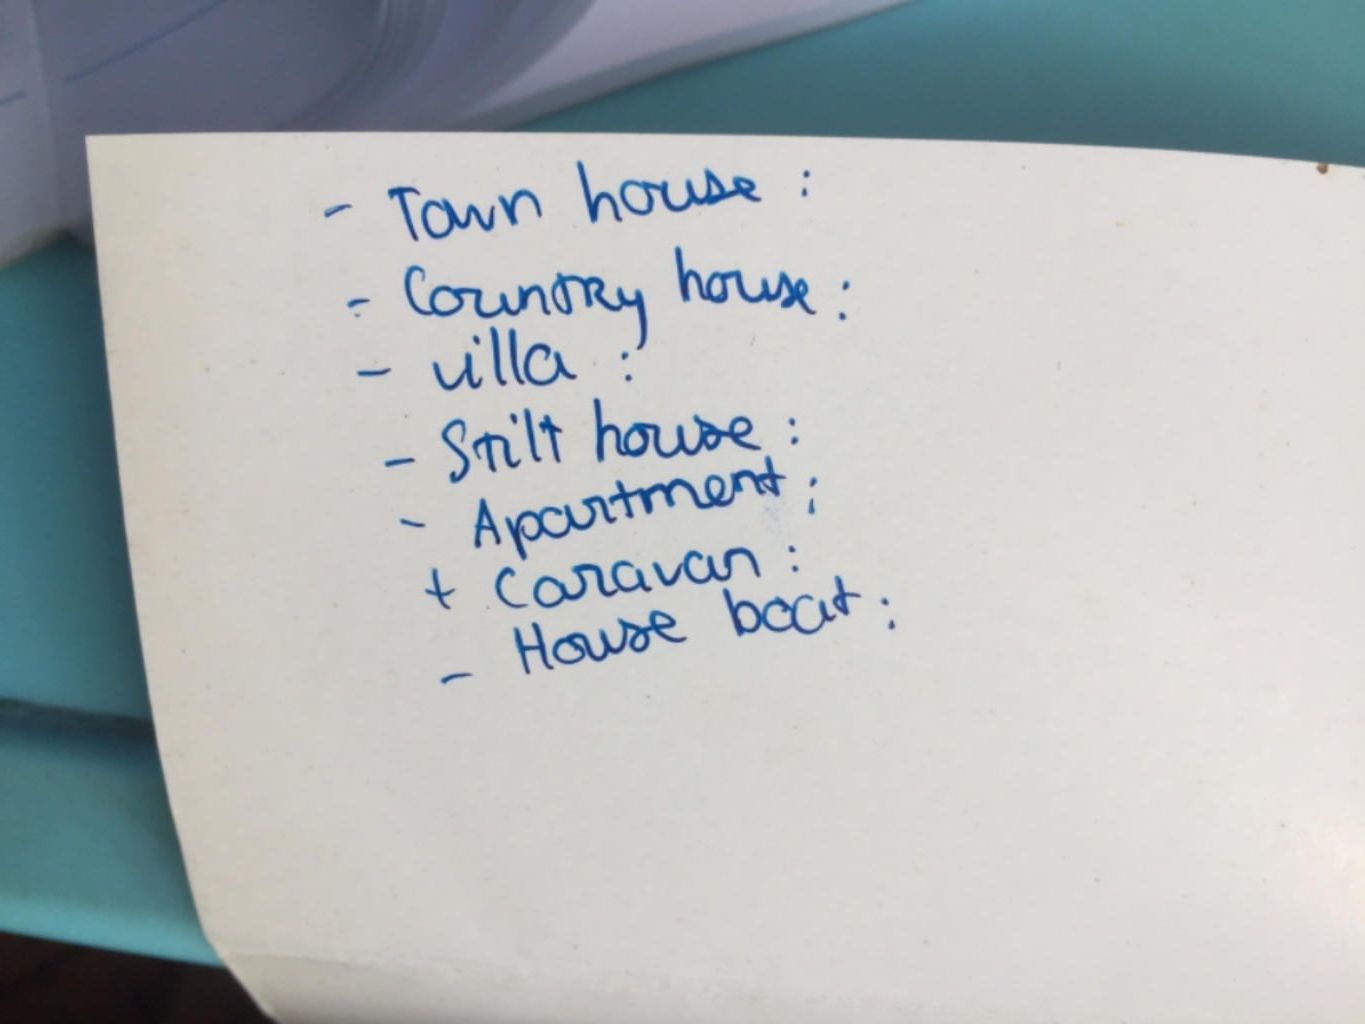 - Town house :
- Country house :
- villa :
- Stilt house :
- Apartment :
+ Caravan :
- House boat :